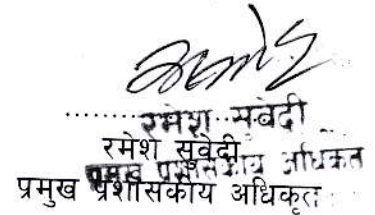 रमेश सुवेदी
रमेश सुवेदी
प्रमुख प्रशासकीय अधिकृत
प्रमुख प्रशासकीय अधिकृत